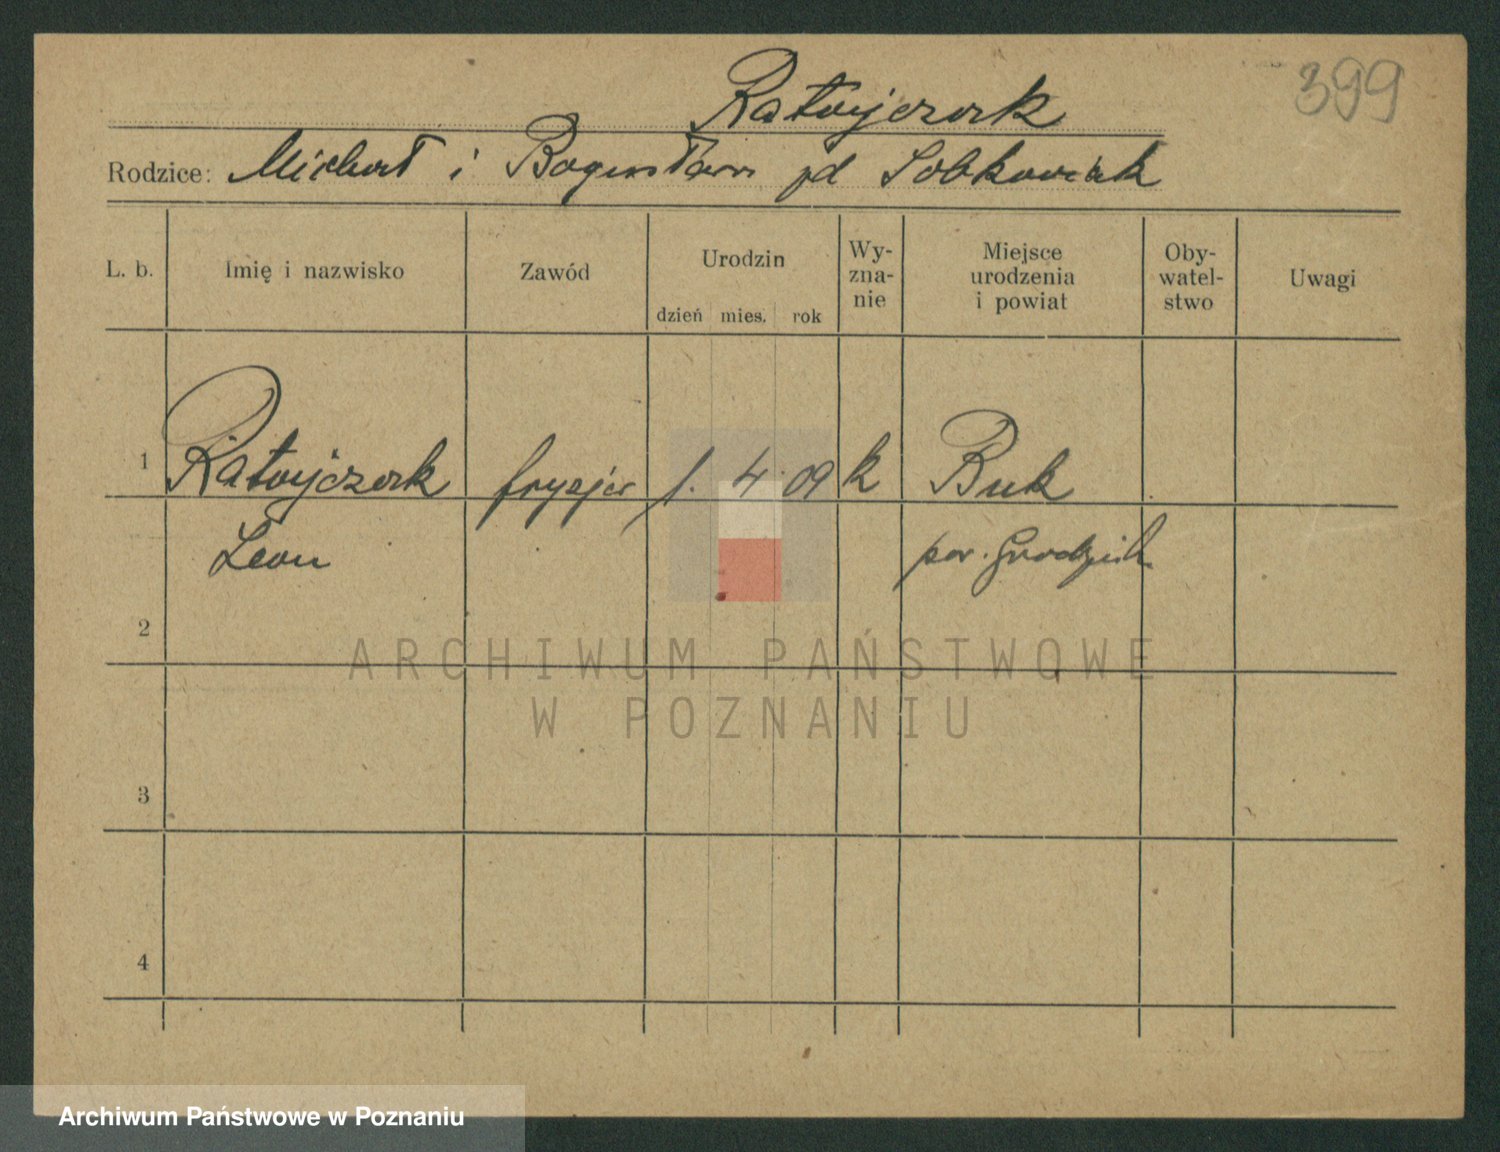 399
Ratajczak
Rodzice: Michał i Bogusława zd Sobkowiak
L. b. Imię i nazwisko Zawód Urodzin dzień mies. rok Wy-zna-nie Miejsce urodzenia i powiat Oby-watel-stwo Uwagi
1 Ratajczak fryzjer 1. 4. 09 k Buk
Leon pow. Grodzisk
2
3
4
ARCHIWUM PAŃSTWOWE
W POZNANIU
Archiwum Państwowe w Poznaniu